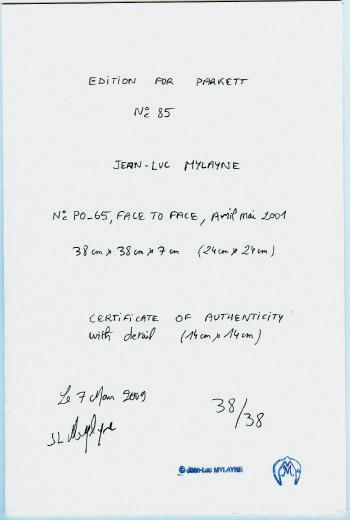 EDITION FOR PARKETT
No 85
JEAN-LUC MYLAYNE
No PO_65, FACE TO FACE, Avril mai 2001
38 cm x 38 cm x 7 cm (24 cm x 24 cm)
CERTIFICATE OF AUTHENTICITY
with detail (14 cm x 14 cm)
Le 7 Mars 2009
JL Mylayne
38/38
© Jean-Luc MYLAYNE